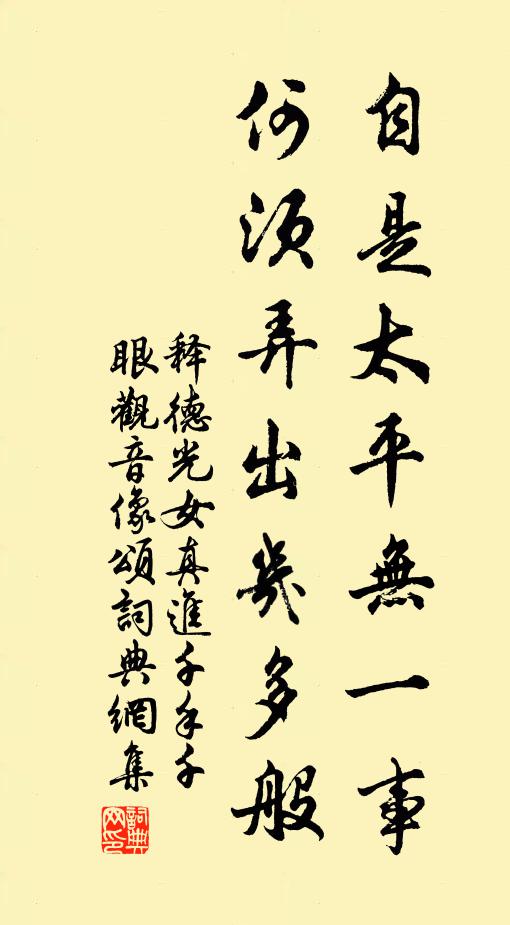 自是太平無一事
何須弄出幾多般
释德光女真進千手千
眼觀音像頌詞典網集
詞典网印